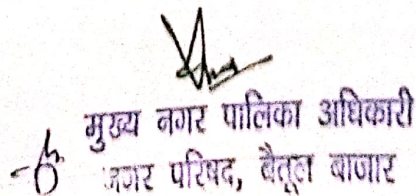 मुख्य नगर पालिका अधिकारी
नगर परिषद, बैतूल बाजार